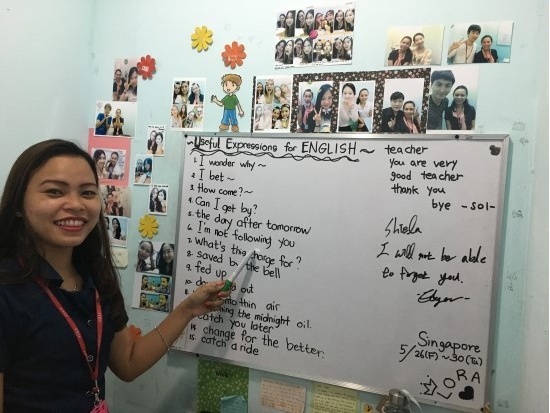 ~Useful Expressions for ENGLISH~
1. I wonder why ~
2. I bet ~
3. How come? ~
4. Can I get by?
5. the day after tomorrow
6. I'm not following you
7. What's this charge for?
8. saved by the bell
9. fed up
10. out
thin air
the midnight oil.
catch you later
14. change for the better.
15. catch a ride
teacher
you are very
good teacher
thank you
bye -SOI-
Shiela
I will not be able
to forget you.
Singapore
5/26(F) ~ 30(Tu)
ORA